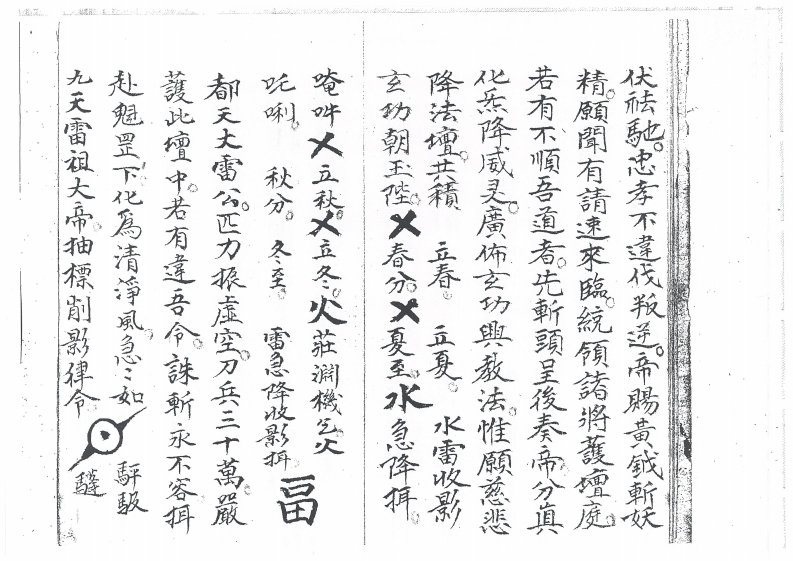 伏祛馳。忠孝不違伐叛逆。帝賜黃鉞斬妖
精。願聞有請速來臨。統領諸將護壇庭。
若有不順吾道者。先斬頭呈後奏帝分真
化炁降威灵。廣佈玄功興教法。惟願慈悲
降法壇。共積 立春 立夏 水雷收影
玄功朝玉陛。乂春分。乂夏至。水急降揖。
唵吽乂立秋。乂立冬。火莊淵機乞火
吒唎。 秋分。 冬至。 雷急降收影揖
都天大雷公。匹力振虛空。刀兵三十萬嚴
護此壇中若有違吾令。誅斬永不容揖
赴魁罡下化為清淨風。急〻如
九天雷祖大帝抽標削影律令